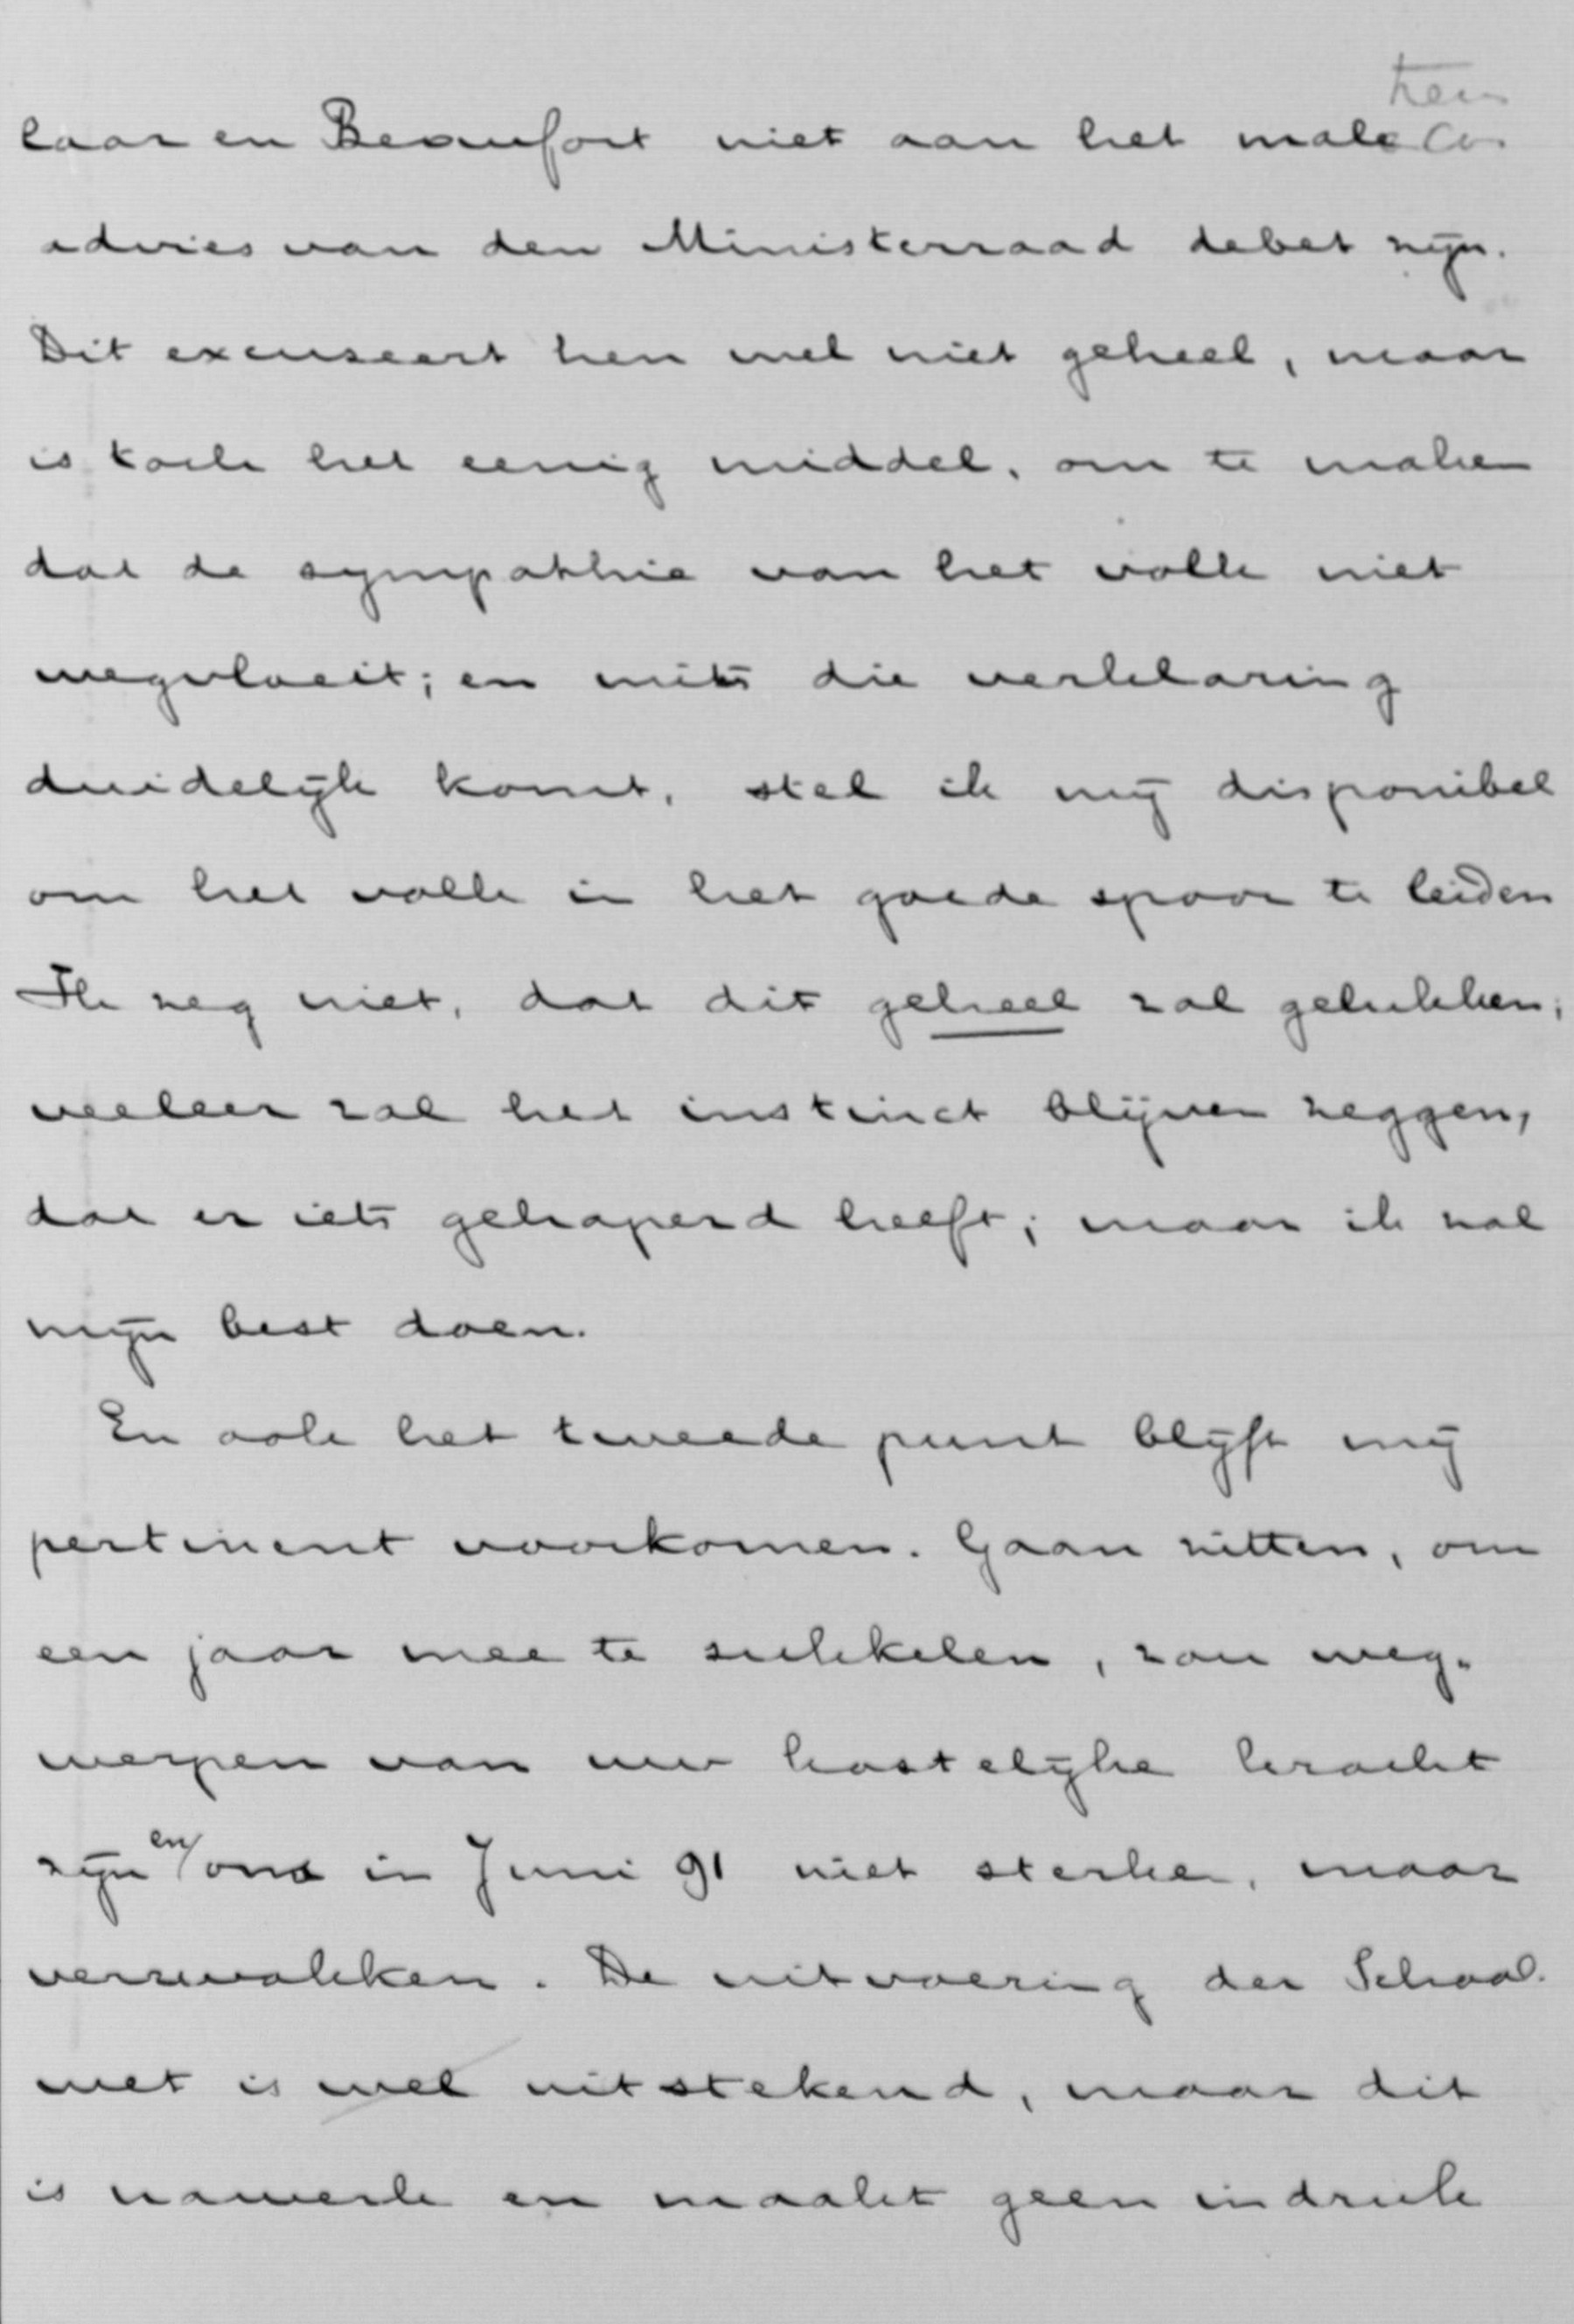 laar en Beaufort niet aan het male
advies van den Ministerraad debet zijn.
Dit excuseert hen wel niet geheel, maar
is toch het eenig middel, om te maken
dat de sympathie van het volk niet
wegvloeit; en mits die verklaring
duidelijk komt, stel ik mij disponibel
om het volk in het goede spoor te leiden
Ik zeg niet, dat dit geheel zal gelukken;
veeleer zal het instinct blijven zeggen,
dat er iets gehaperd heeft; maar ik zal
mijn best doen.
En ook het tweede punt blijft mij
pertinent voorkomen. Gaan zitten, om
een jaar mee te sukkelen, zou weg-
werpen van uw kostelijke kracht
zijn en ons in Juni 91 niet sterken, maar
verzwakken. De uitvoering der School-
wet is wel uitstekend, maar dit
is nawerk en maakt geen indruk